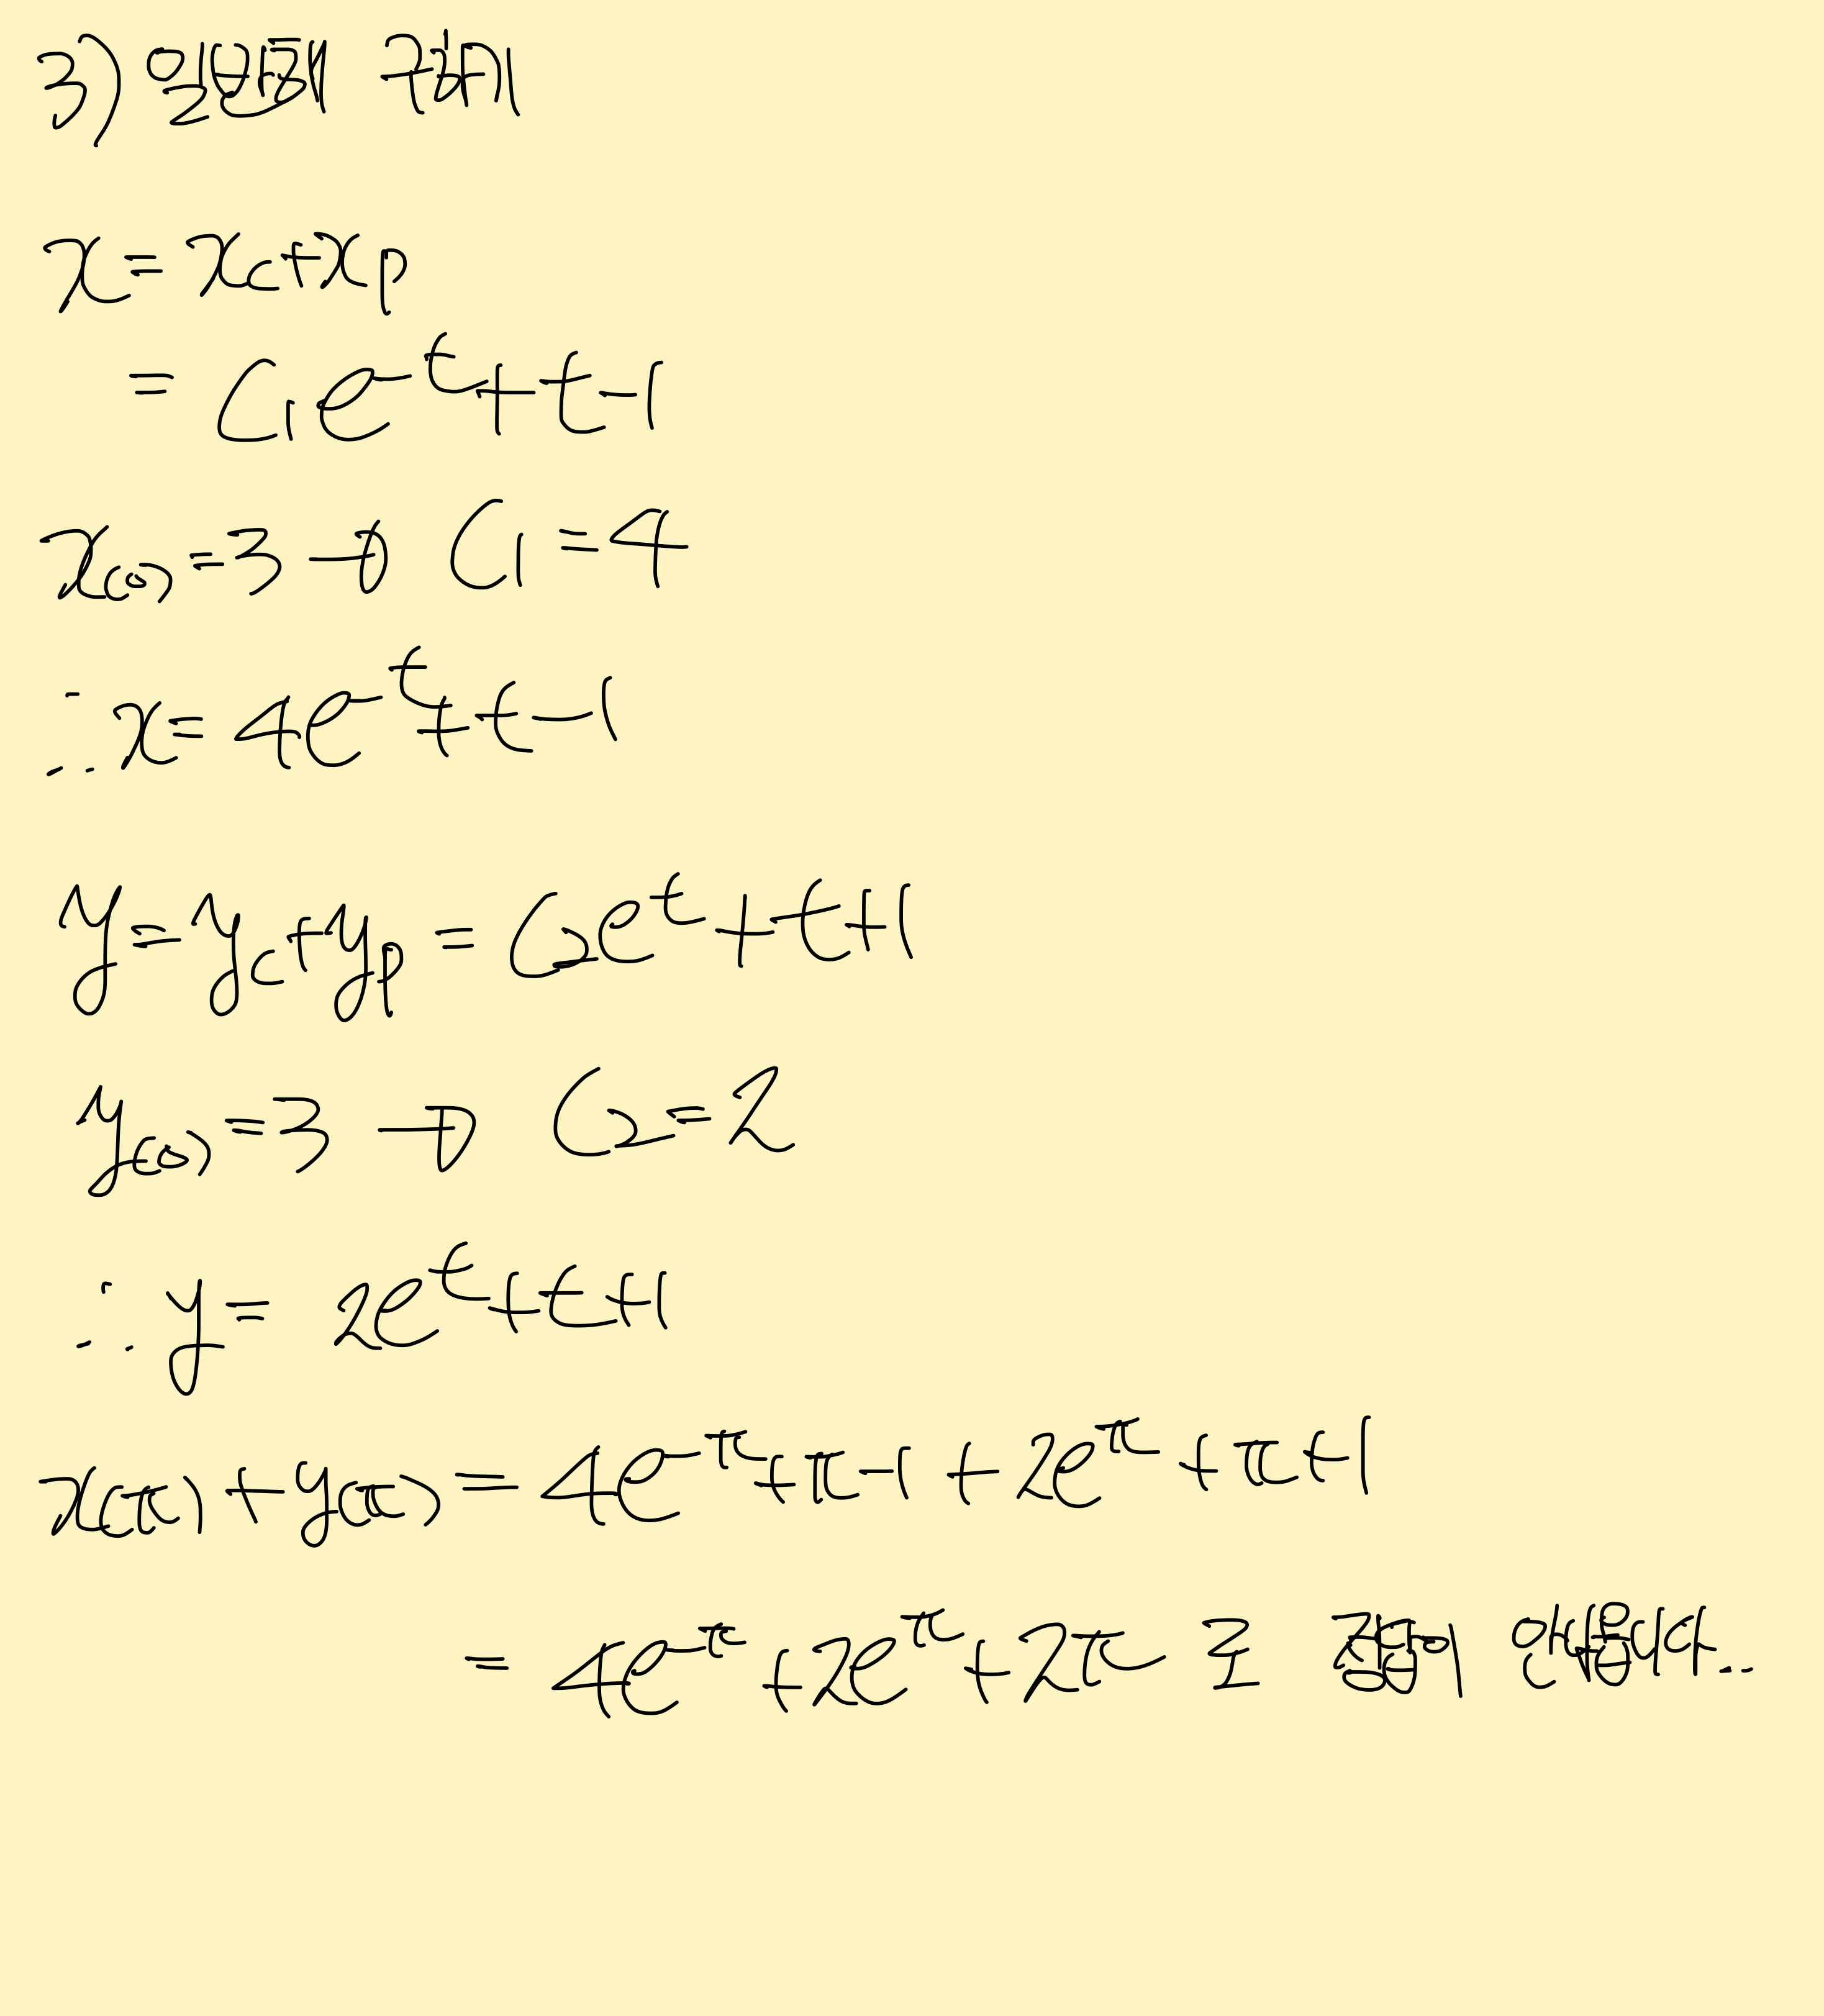 3) 일반해 구하기
x = x_c + x_p
= C₁e^{-t} + t - 1
x(0) = 3 → C₁ = 4
∴ x = 4e^{-t} + t - 1
y = y_c + y_p = C₂e^{t} + t + 1
y(0) = 3 → C₂ = 2
∴ y = 2e^{t} + t + 1
x(π) + y(π) = 4e^{-π} + π - 1 + 2e^{π} + π + 1
= 4e^{-π} + 2e^{π} + 2π